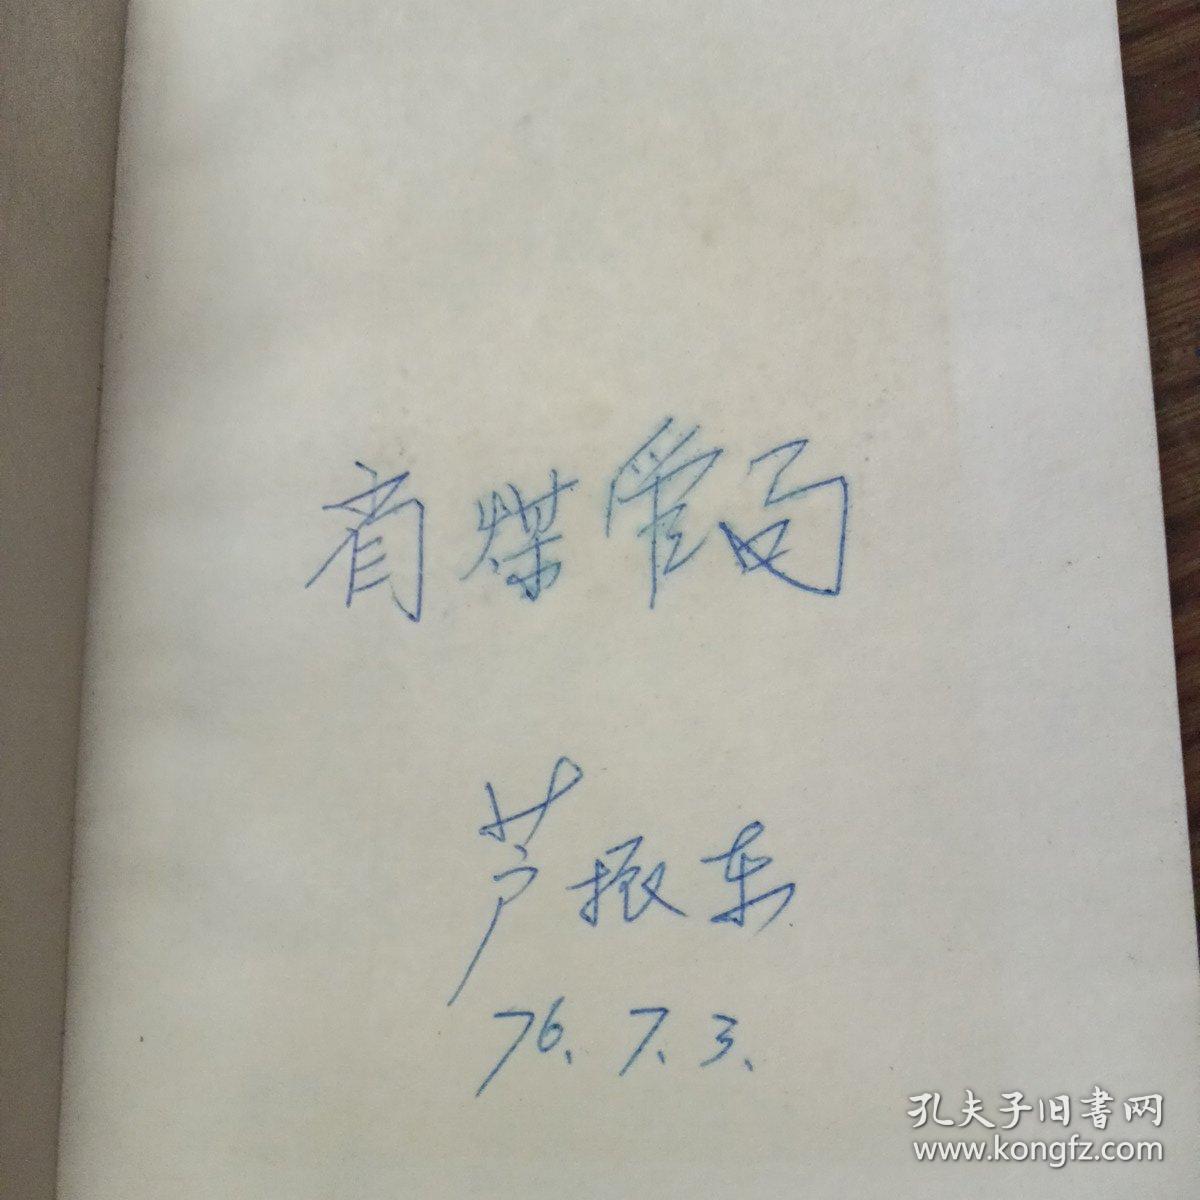 省煤管局
芦振东
76.7.3.
孔夫子旧書网
www.kongfz.com